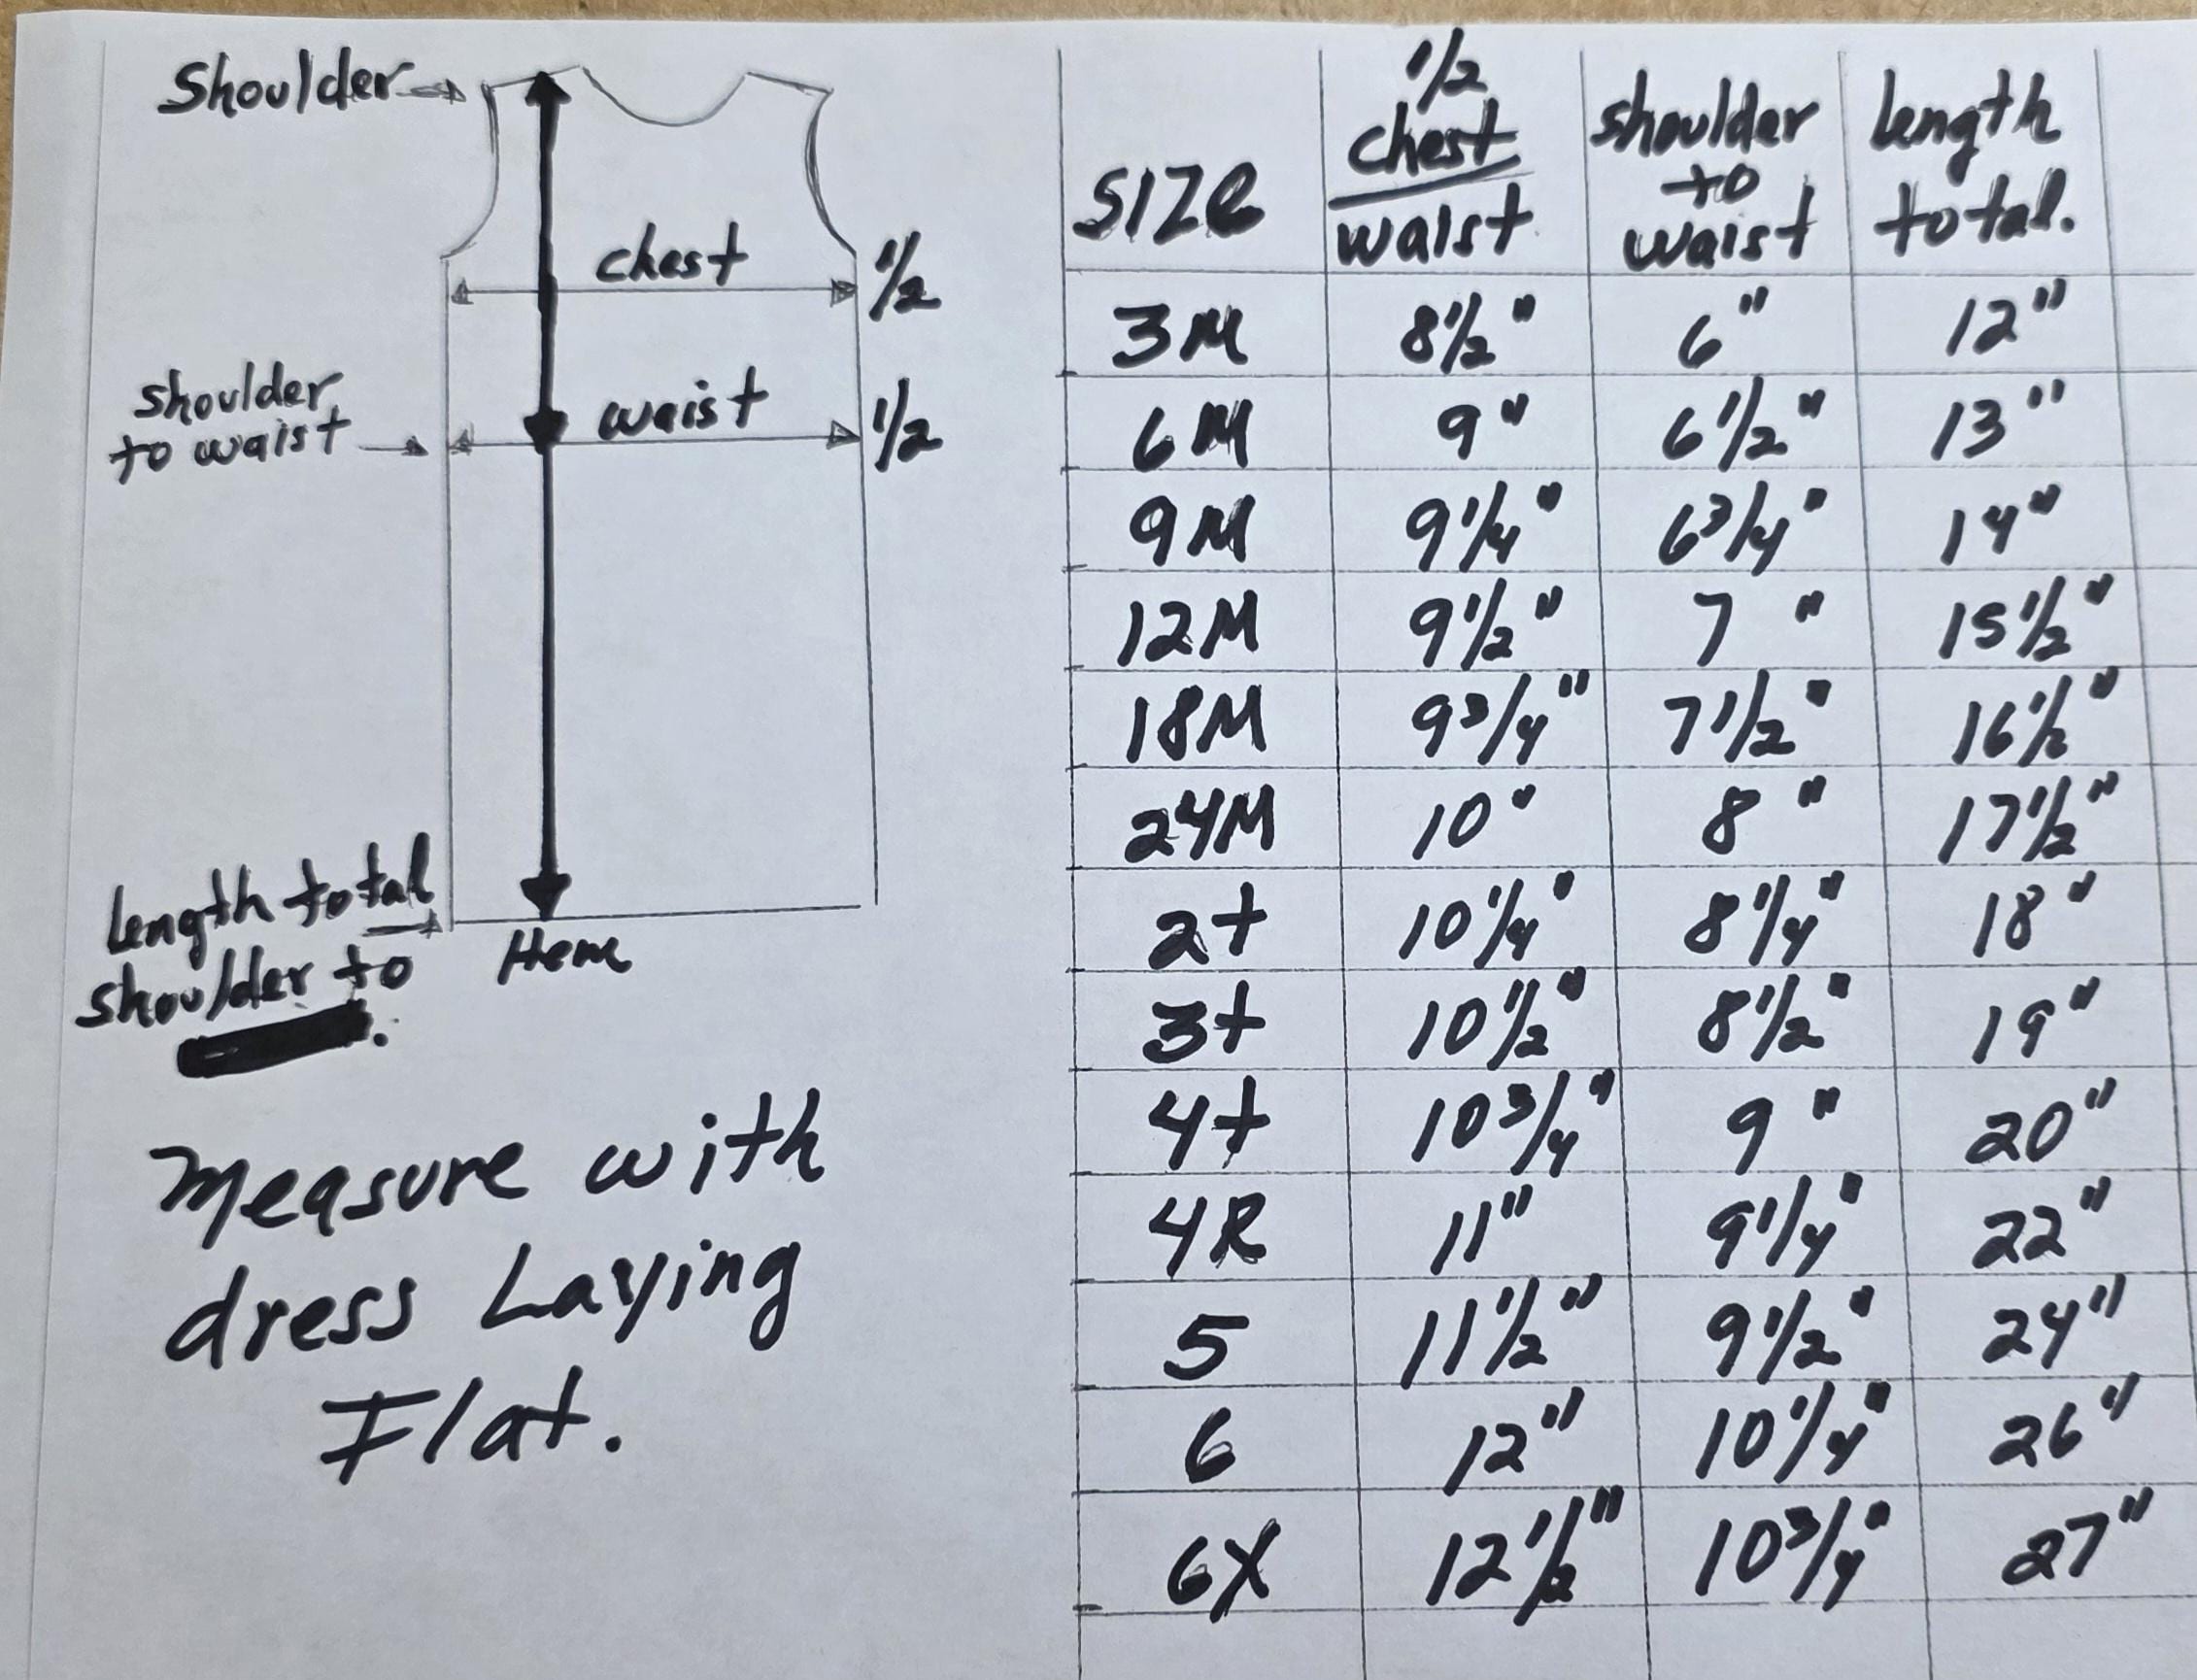 Shoulder
chest 1/2
shoulder
to waist
waist 1/2
length total
shoulder to
Hem
Measure with
dress Laying
Flat.
SIZE 1/2 chest/waist shoulder to waist length total.
3M 8 1/2" 6" 12"
6M 9" 6 1/2" 13"
9M 9 1/4" 6 3/4" 14"
12M 9 1/2" 7" 15 1/2"
18M 9 3/4" 7 1/2" 16 1/2"
24M 10" 8" 17 1/2"
2t 10 1/4" 8 1/4" 18"
3t 10 1/2" 8 1/2" 19"
4t 10 3/4" 9" 20"
4R 11" 9 1/4" 22"
5 11 1/2" 9 1/2" 24"
6 12" 10 1/4" 26"
6X 12 1/2" 10 3/4" 27"